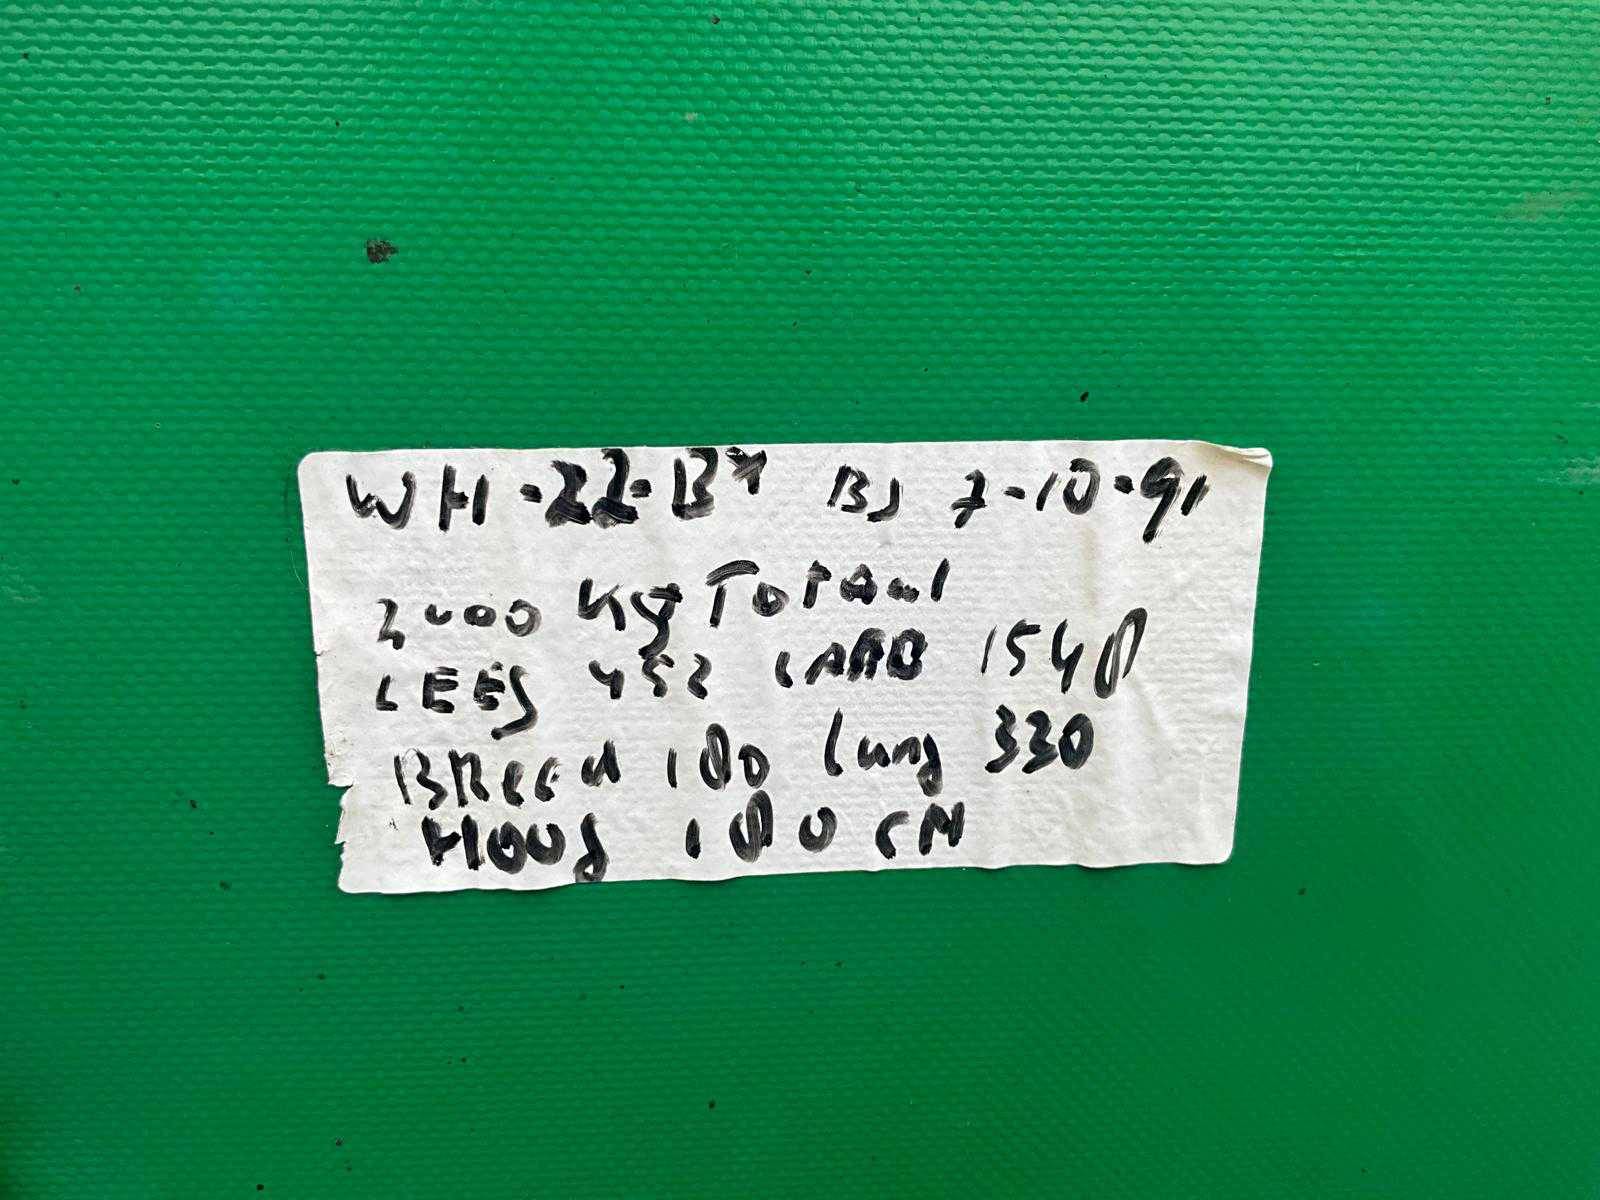 WH-22-BX BJ 7-10-91
2000 Kg Totaal
LEEg 452 LAAD 1548
BReed 180 lang 330
Hoog 180 CM